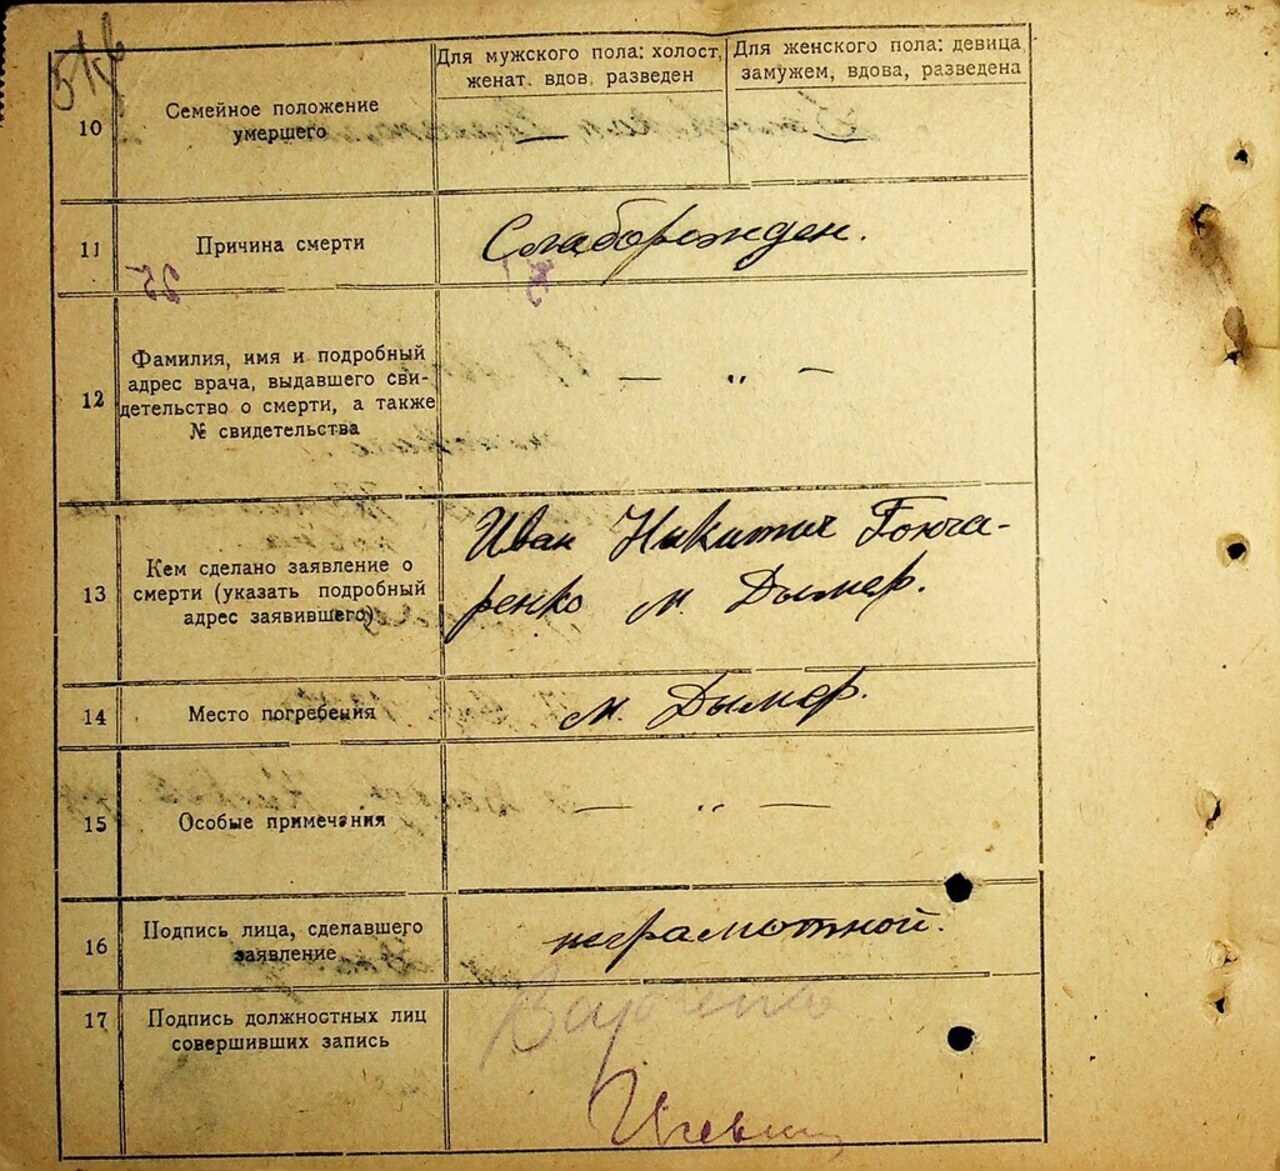 10
Семейное положение
умершего
Для мужского пола: холост,
женат. вдов, разведен
Для женского пола: девица,
замужем, вдова, разведена
— —
11
Причина смерти
Слаборожден.
12
Фамилия, имя и подробный
адрес врача, выдавшего сви-
детельство о смерти, а также
№ свидетельства
— „ —
13
Кем сделано заявление о
смерти (указать подробный
адрес заявившего)
Иван Никитич Гонча-
ренко м. Дымер.
14
Место погребения
м. Дымер.
15
Особые примечания
— „ —
16
Подпись лица, сделавшего
заявление
неграмотной.
17
Подпись должностных лиц
совершивших запись